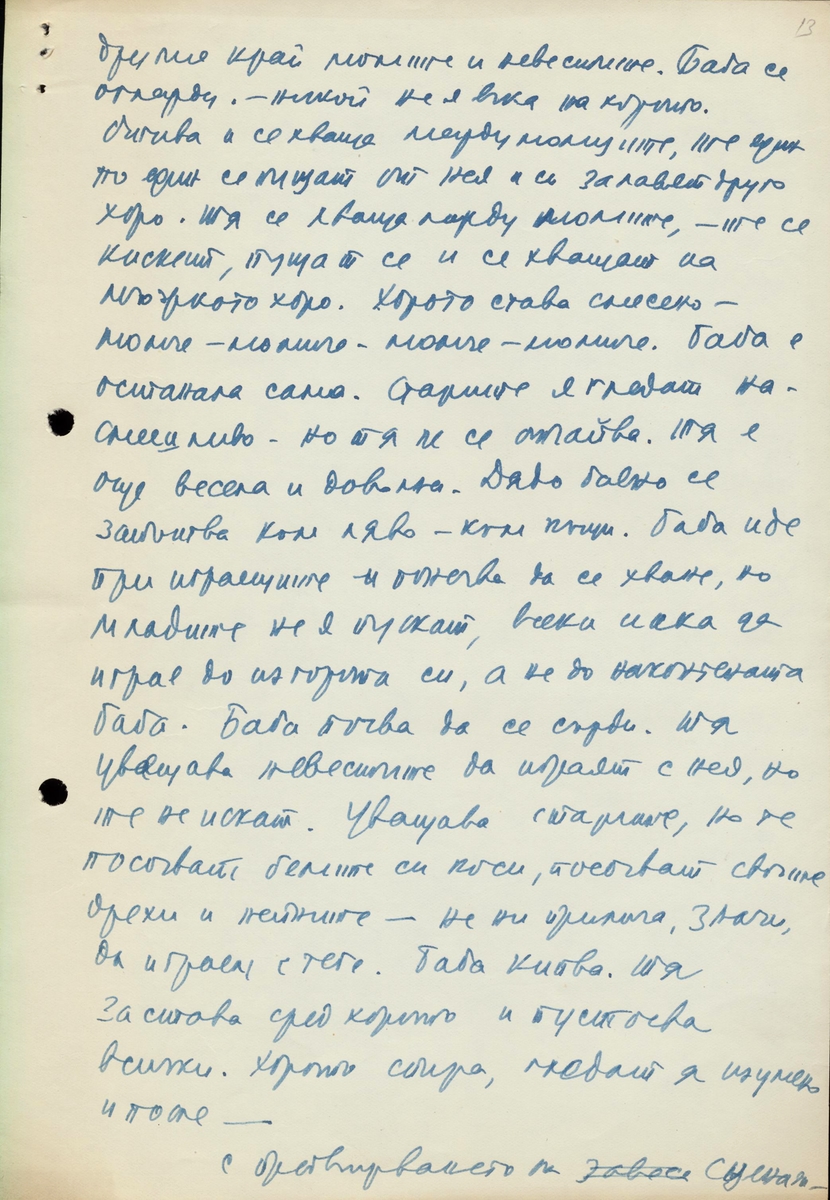 13
другия край момите и невестите. Баба се
отпарди. – никой не я вика на хорото.
Отива и се хваща между момците, те един
по един се пущат от нея и си залавят друго
хоро. Тя се хваща между момите, – те се
кискат, пущат се и се хващат на
момчкото хоро. Хорото става смесено –
момче – момиче – момче – момиче. Баба е
останала сама. Старите я гледат на-
смешливо – но тя не се отчайва. Тя е
още весела и доволна. Дядо бавно се
към ляво – към къщи. Баба иде
при играещите и понечва да се хване, но
младите не я пускат, всеки иска да
играе до изгората си, а не до наконтената
баба. Баба почва да се сърди. Тя
увещава невестите да играят с нея, но
те не искат. Увещава старите, но те
посочват белите си коси, посочват своите
дрехи и нейните – не ни прилича, значи,
да играем с тебе. Баба кипва. Тя
застава сред хорото и
всички. Хорото спира, гледат я изумено
и после —
с на завеса сценат–